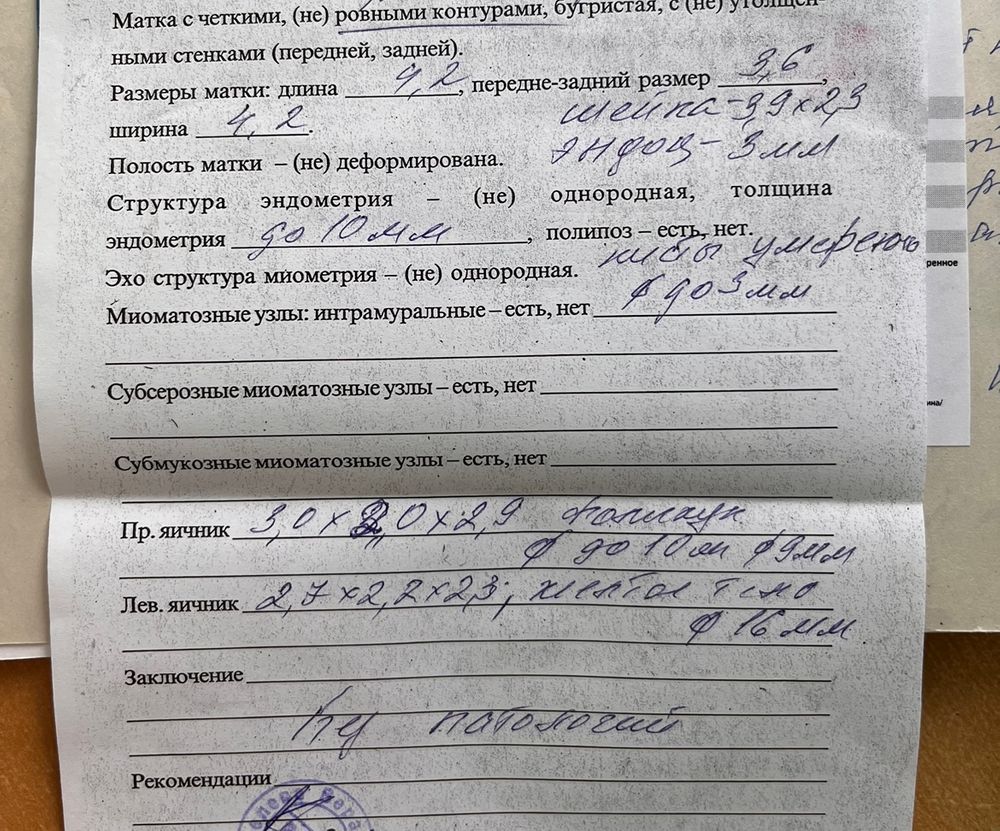 Матка с четкими, (не) ровными контурами, бугристая, с (не) утолщен-
ными стенками (передней, задней).
Размеры матки: длина 4,2, передне-задний размер 3,6,
ширина 4,2. шейка-3,9х2,3
Полость матки – (не) деформирована. эндоц- 3мм
Структура эндометрия – (не) однородная, толщина
эндометрия до 10 мм, полипоз – есть, нет.
Эхо структура миометрия – (не) однородная. кисты
Миоматозные узлы: интрамуральные – есть, нет ф до 3мм
Субсерозные миоматозные узлы – есть, нет
Субмукозные миоматозные узлы – есть, нет
Пр. яичник 3,0 х 2,0 х 2,9 фолликул
ф до 10 мм ф 9мм
Лев. яичник 2,7х2,2х2,3; желтое тело
ф 16 мм
Заключение
патологий
Рекомендации
ренное
ина/